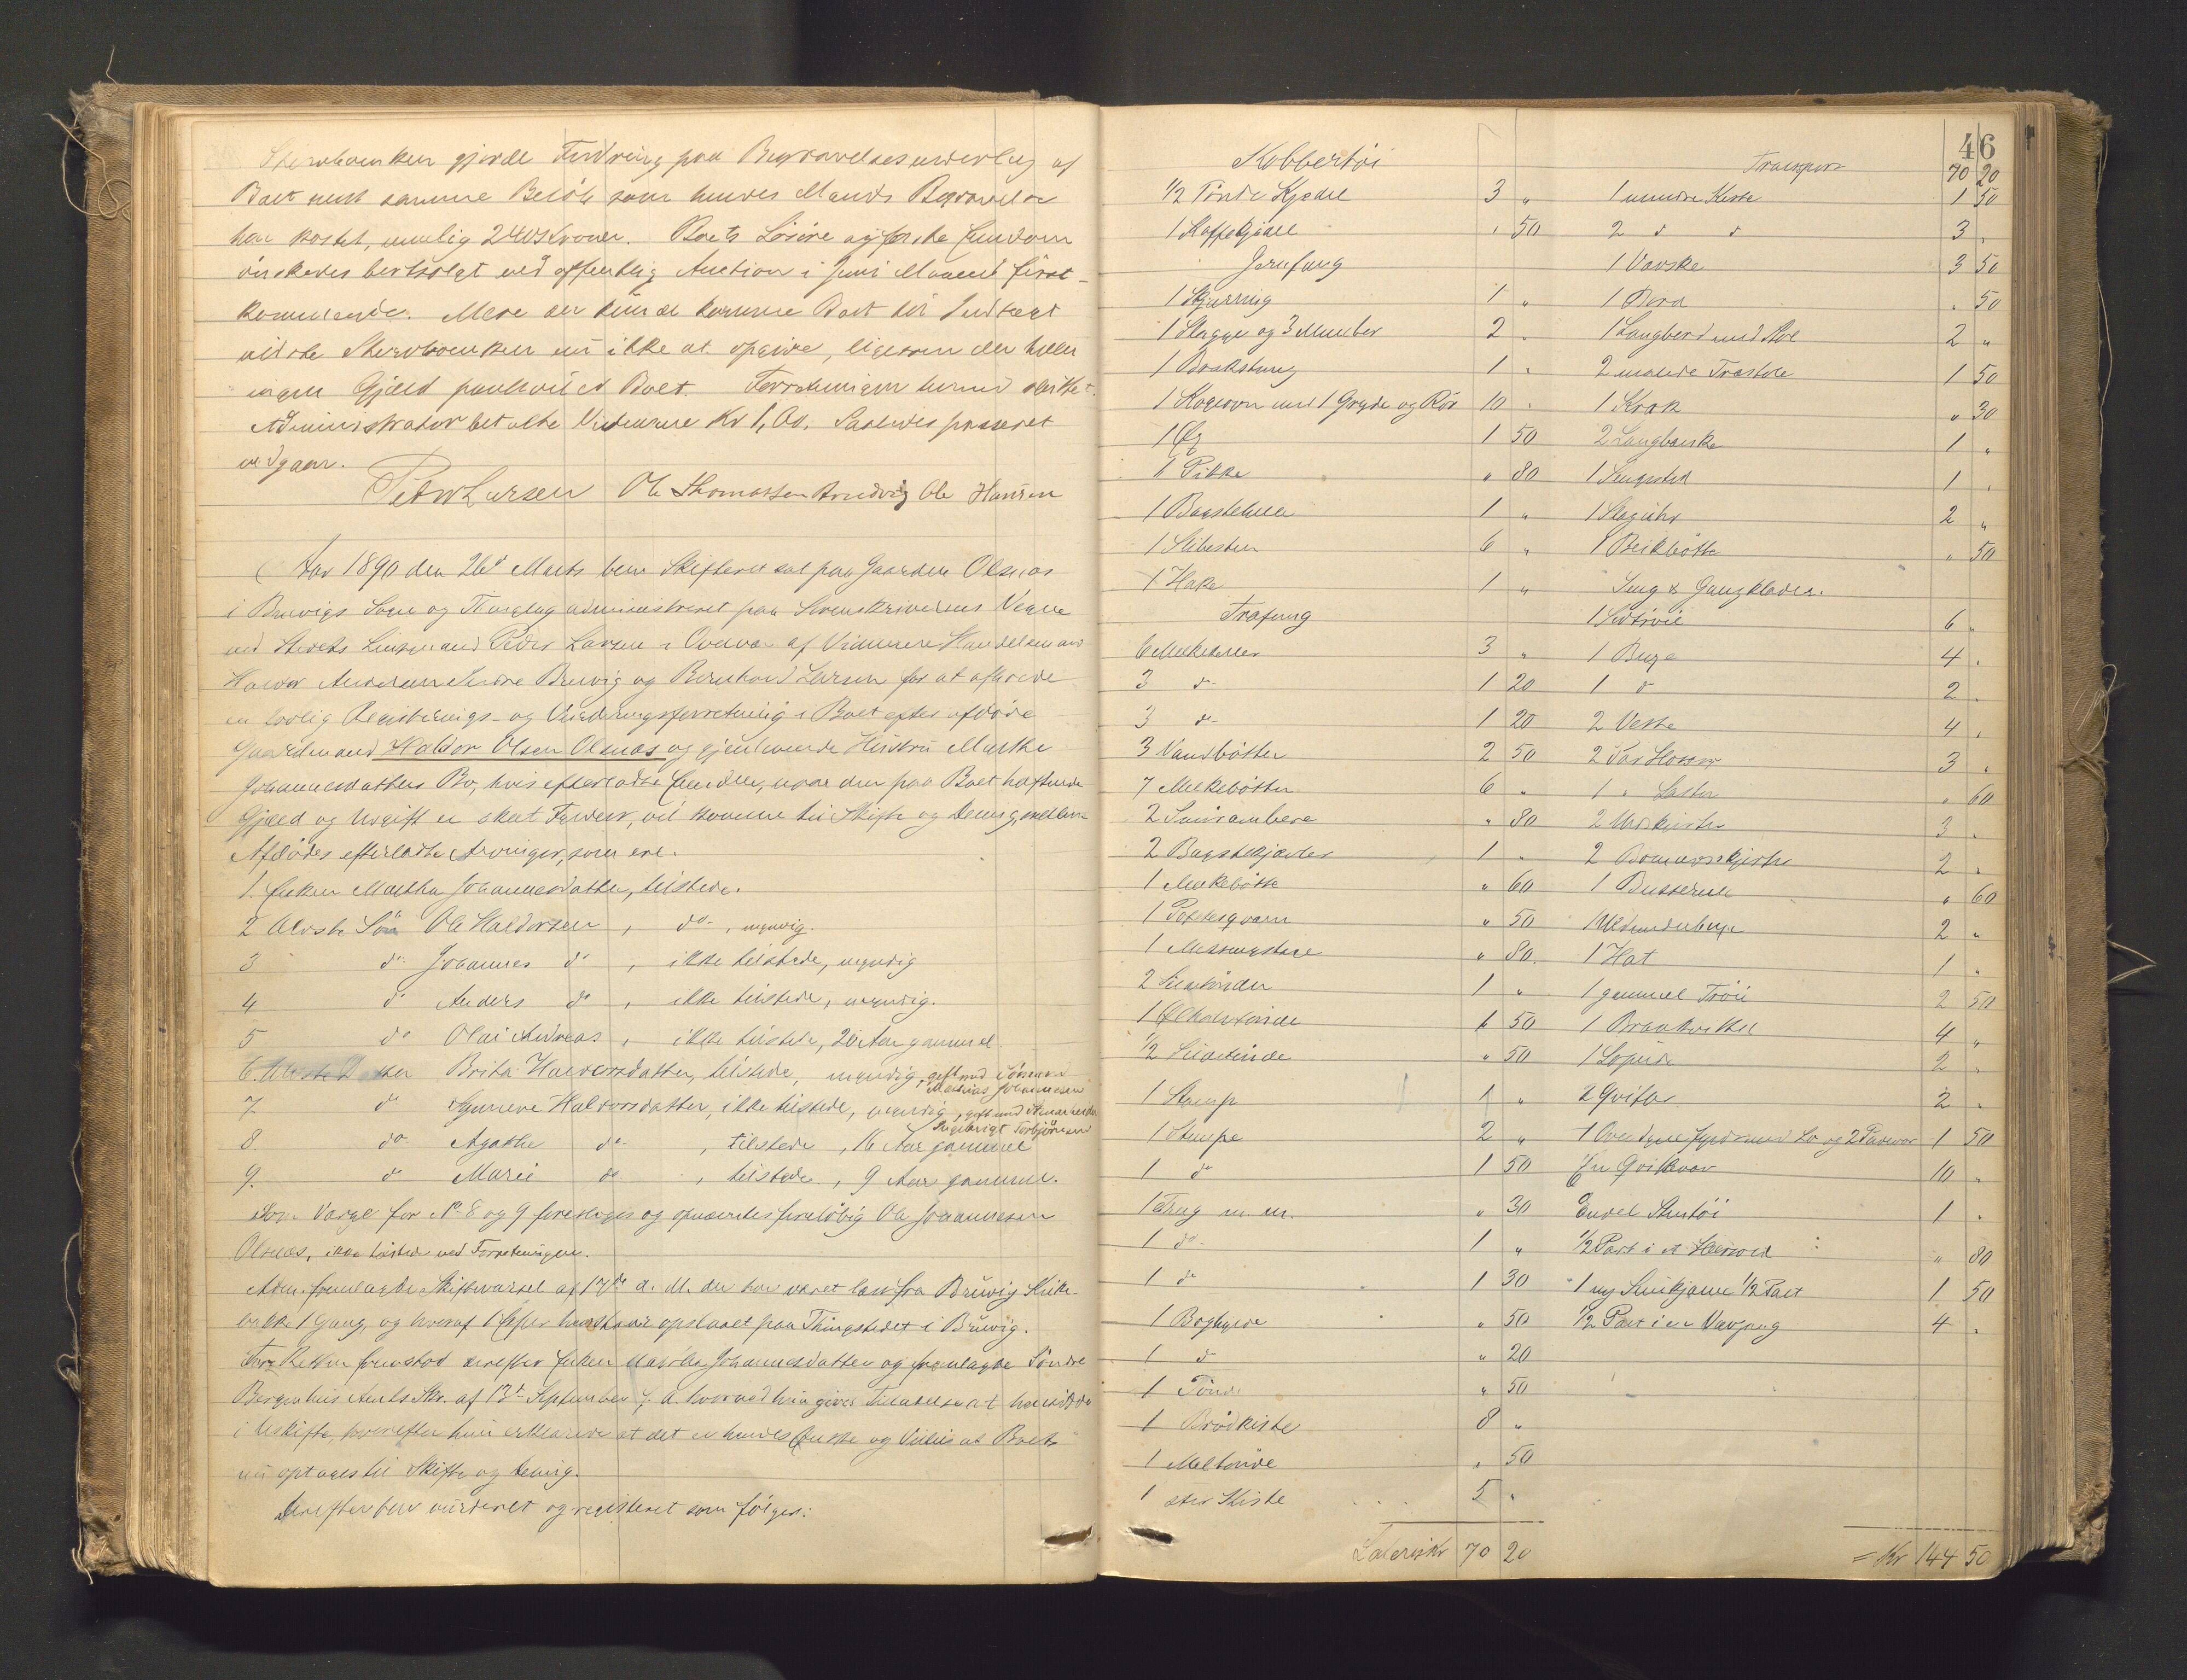 Sterboenken gjorde Fordring paa Begravelsesuderlag af
Boet med samme Beløb som hendes Mands Begravelse
har kostet, nemlig 240 Kroner. Boets Løsøre og faste Eiendom
ønskedes bortsolgt ved offentlig Auction i Juni Maaned først-
kommende. Mere der kunde komme Boet til Indtægt
vidste Sterboenken nu ikke at opgive, ligesom der heller
ingen Gjæld paahvilet Boet. Forretningen hermed sluttet.
Administrator betalte Vidnerne Kr 1,00. Saaledes passeret
vidgaar.
Peder Larsen Ole Thomassen Arndvig Ole Hansen
Aar 1890 den 26de Marts blev Skifteret sat paa Gaarden Olsnæs
i Bruvigs Sogn og Thinglag administreret paa Sorenskriverens Vegne
ved Stedets Lensmand Peder Larsen i Overvær af Vidnerne Handelsmand
Haldor Andersen Bruvig og Bernhard Larsen for at afholde
en lovlig Registrerings- og Vurderingsforretning i Boet efter afdøde
Gaardmand Haldor Olsen Olsnæs og gjenlevende Hustru Martha
Johannesdatters Bo, hvis efterladte Eiendele, naar den paa Boet hæftende
Gjæld og Udgift er skeet Fyldest, vil komme til Skifte og Deling mellem
Afdødes efterladte Arvinger, som ere.
1. Enken Martha Johannesdatter, tilstede.
2 Ældste Søn Ole Haldorsen, do, myndig.
3 do Johannes do, ikke tilstede, myndig
4 do Anders do, ikke tilstede, myndig.
5 do Olai Andreas, ikke tilstede, 20 Aar gammel
6. Ældste Datter Brita Haldorsdatter, tilstede, myndig, gift med Sømand
Mathias Johannesen
7 do Haldorsdatter, ikke tilstede, myndig, gift med
Ingebrigt Torbjørnsen
8. do Agathe do, tilstede, 16 Aar gammel
9. do Marie do, tilstede, 9 Aar gammel.
Som Værge for No 8 og 9 foresloges og opnævntes foreløbig Ole Johannesen
Olsnæs, ikke tilstede ved Forretningen.
Adm. fremlagde Skiftevarsel af 17de d. M. der har været læst fra Bruvig Kirke-
bakke 1 Gang, og hvoraf har været opslaaet paa Thingstedet i Bruvig.
For Retten fremstod derefter Enken Martha Johannesdatter og fremlagde Søndre
Bergenhus Amts Skr. af 13de September f. A. hvorved hun gives Tilladelse at hensidde
i uskifte, hvorefter hun erklærede at det er hendes Ønske og Villie at Boet
nu optages til Skifte og deling.
Derefter blev vurderet og registreret som følger:
46
Kobbertøi
1/2 Tønde Kjedel 3 "
1 Kaffekjedel " 50
Jernfang
1 Skjæring 1 "
1 Slægge og 3 Mineber 2 "
1 Brækstang 1 "
1 Kogeovn med 1 Gryde og Rør 10 "
1 Øx 1 50
1 Pikke " 80
1 Bagstehelle 1 "
1 Slibesten 6 "
1 Hake 1 "
Træfang
6 Melkekoller 3 "
3 do 1 20
3 do 1 20
3 Vandbøtter 2 50
7 Melkebøtter 6 "
2 Smørambere " 80
2 Bagstefjæler 1 "
1 Melkebøtte " 60
1 Potetesqværn " 50
1 " 80
2 Sildetønder 1 "
1 Ølhalvtønde 1 50
1/2 Sildetønde " 50
1 Stamp 1 "
1 Stampe 2 "
1 do 1 50
1 Trug m. m. " 30
1 do 1 "
1 do 1 30
1 Boghylde " 50
1 do " 20
1 Tønde " 50
1 Brødkiste 8 "
1 Meltønde " 50
1 stor Kiste 5 "
Lateris Kr 70 20
Transport 70 20
1 mindre Kiste 1 50
2 do do 3 "
1 Vævske 3 50
1 Bord " 50
1 Langbord med Stol 2 "
2 malede Træstole 1 50
1 Krak " 30
2 Langbænke 1 "
1 Sengsted 1 "
1 Slaguhr 2 "
1 Beikbøtte " 50
Seng & Gangklæder.
1 Sidtrøie 6 "
1 Buxe 4 "
1 do 2 "
2 Veste 4 "
2 Par Hoser 3 "
1 " Lester " 60
2 Uldskjorter 3 "
2 Bomuldsskjorter 2 "
1 Busserul " 60
1 Uldunderbuxe 2 "
1 Hat 1 "
1 gammel Trøie 2 50
1 4 "
1 2 "
2 Qvitler 2 "
1 Overdyne fyldt med Lo og 2 Puder 1 50
En Qvilvær 10 "
Endel Stentøi 1 "
1/2 Part i et " 80
1 ny 1/2 Part 1 50
1/2 Part i en Vævgang 4 "
= Kr 144 50